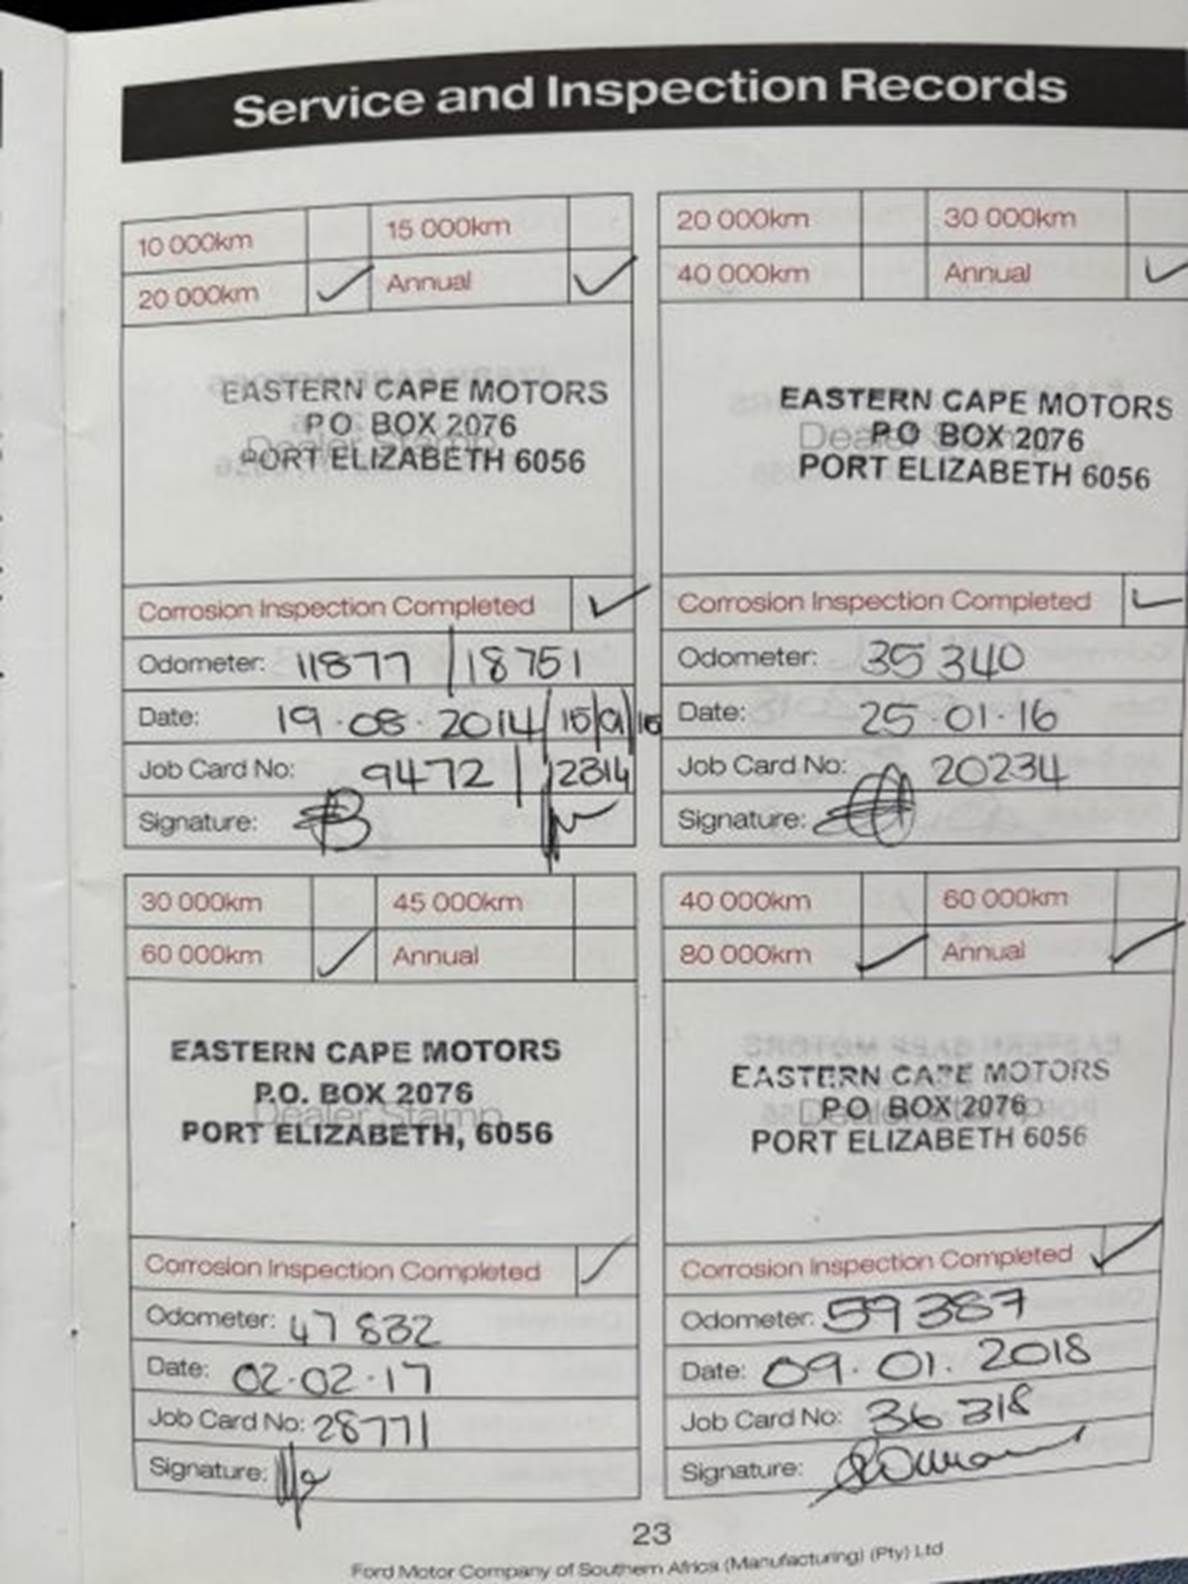 Service and Inspection Records
10 000km 15 000km
20 000km ✓ Annual ✓
EASTERN CAPE MOTORS
P O BOX 2076
Dealer Stamp
PORT ELIZABETH 6056
Corrosion Inspection Completed ✓
Odometer: 11877 / 18751
Date: 19.08.2014 / 15/01/15
Job Card No: 9472 / 12314
Signature:
20 000km 30 000km
40 000km Annual ✓
EASTERN CAPE MOTORS
P O BOX 2076
PORT ELIZABETH 6056
Corrosion Inspection Completed ✓
Odometer: 35 340
Date: 25.01.16
Job Card No: 20234
Signature:
30 000km 45 000km
60 000km ✓ Annual
EASTERN CAPE MOTORS
P.O. BOX 2076
Dealer Stamp
PORT ELIZABETH, 6056
Corrosion Inspection Completed ✓
Odometer: 47 832
Date: 02.02.17
Job Card No: 28771
Signature:
40 000km 60 000km
80 000km ✓ Annual ✓
EASTERN CAPE MOTORS
P O BOX 2076
PORT ELIZABETH 6056
Corrosion Inspection Completed ✓
Odometer: 59387
Date: 09.01.2018
Job Card No: 36 318
Signature:
23
Ford Motor Company of Southern Africa (Manufacturing) (Pty) Ltd